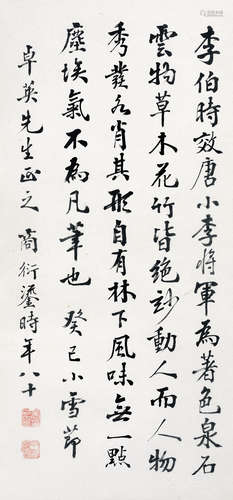 李伯時效唐小李將軍為著色泉石
雲物草木花竹皆絕玅動人而人物
秀麗各肖其形自有林下風味無一點
塵埃氣不為凡筆也 癸巳小雪節
卓英先生正之 商衍鎏時年八十